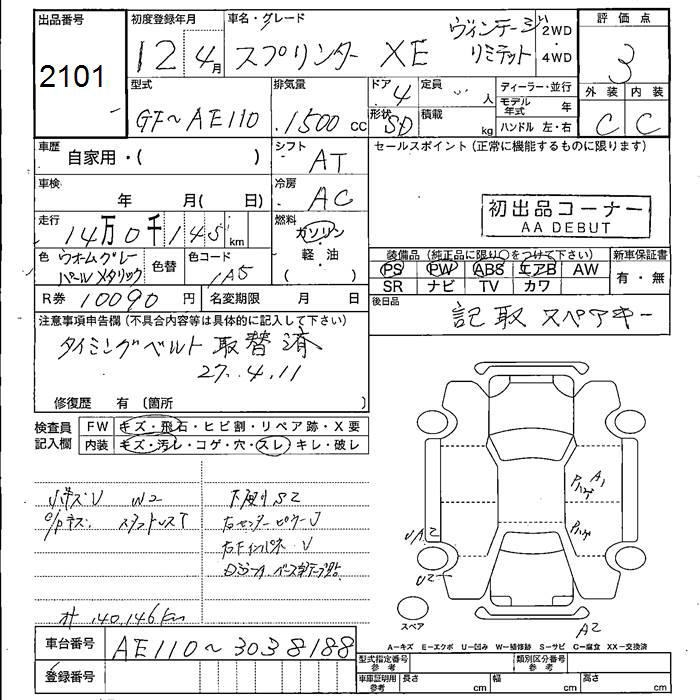 出品番号
2101
初度登録年月
12 4月
車名・グレード
スプリンター XE ヴィンテージ
リミテット
2WD
・
4WD
評価点
3
型式
GF~AE110
排気量
1500 cc
ドア
4
形状
SD
定員
人
積載
kg
ディーラー・並行
モデル年式 年
ハンドル 左・右
外装 内装
C C
車歴
自家用・( )
シフト
AT
セールスポイント(正常に機能するものに限ります)
車検
年 月( 日)
冷房
AC
初出品コーナー
AA DEBUT
走行
14万0千145km
燃料
ガソリン
軽・油
( )
色
ウオームグレー
パールメタリック
色替
色コード
1A5
装備品(純正品に限り○をつけて下さい)
PS PW ABS エアB AW
SR ナビ TV カワ
新車保証書
有・無
R券 10090 円
名変期限 月 日
後日品
記取 スペアキー
注意事項申告欄(不具合内容等は具体的に記入して下さい)
タイミングベルト取替済
27.4.11
修復歴 有〔箇所 〕
検査員
記入欄
FW キズ・飛石・ヒビ割・リペア跡・X要
内装 キズ・汚レ・コゲ・穴・スレ・キレ・破レ
小キズU W2
下廻りS2
右センターピラーU
右FインパネU
オ 140,146km
A1
UA2
U2
A2
スペア
車台番号 AE110~3038188
登録番号
A-キズ E-エクボ U-凹み W-補修跡 S-サビ C-腐食 XX-交換済
型式指定番号
参考
類別区分番号
参考
車庫証明用
参考
長さ cm
幅 cm
高さ cm